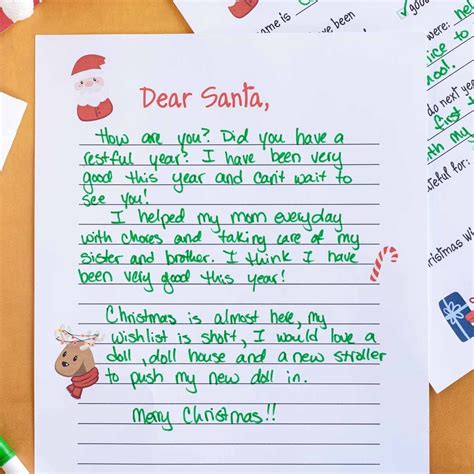 Dear Santa,
How are you? Did you have a
restful year? I have been very
good this year and can't wait to
see you!
I helped my mom everyday
with chores and taking care of my
sister and brother. I think I have
been very good this year!
Christmas is almost here, my
wishlist is short, I would love a
doll, doll house and a new stroller
to push my new doll in.
Merry Christmas!!
name is
have been
good
were:
nice to
do next year
first t
with my
ateful for:
hristmas wi